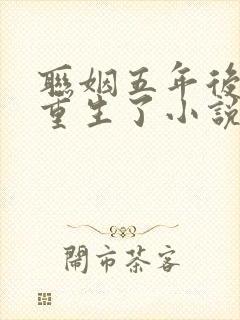 聯姻五年後
重生了小説
鬧市茶客